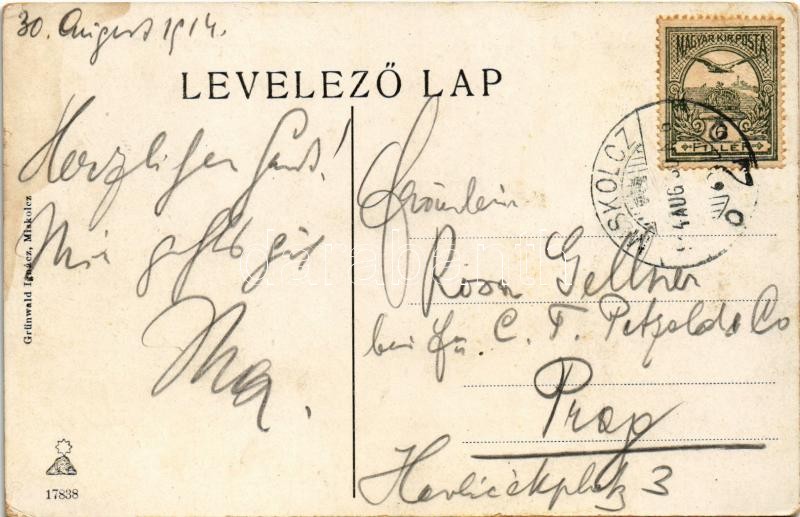 30. August 1914.
LEVELEZŐ LAP
MAGYAR KIR. POSTA
6
FILLÉR
MISKOLCZ
Herzlichen Gruß!
Mir gehts gut
Fräulein
Rosa Gellner
bei Fa. C. T. Petzold & Co
Prag
Havlíčekplatz 3
Grünwald Ignácz, Miskolcz
17838
darabanth